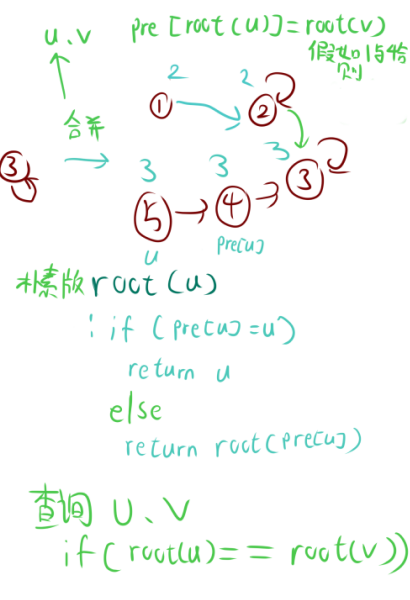 u、v pre [root(u)]=root(v)
假如1与5合并
则
2 2
① ②
合并
③ 3 3 3
⑤ ④ ③
u pre[u]
朴素版 root(u)
: if (pre[u]=u)
return u
else
return root(pre[u])
查询 u、v
if(root(u)== root(v))